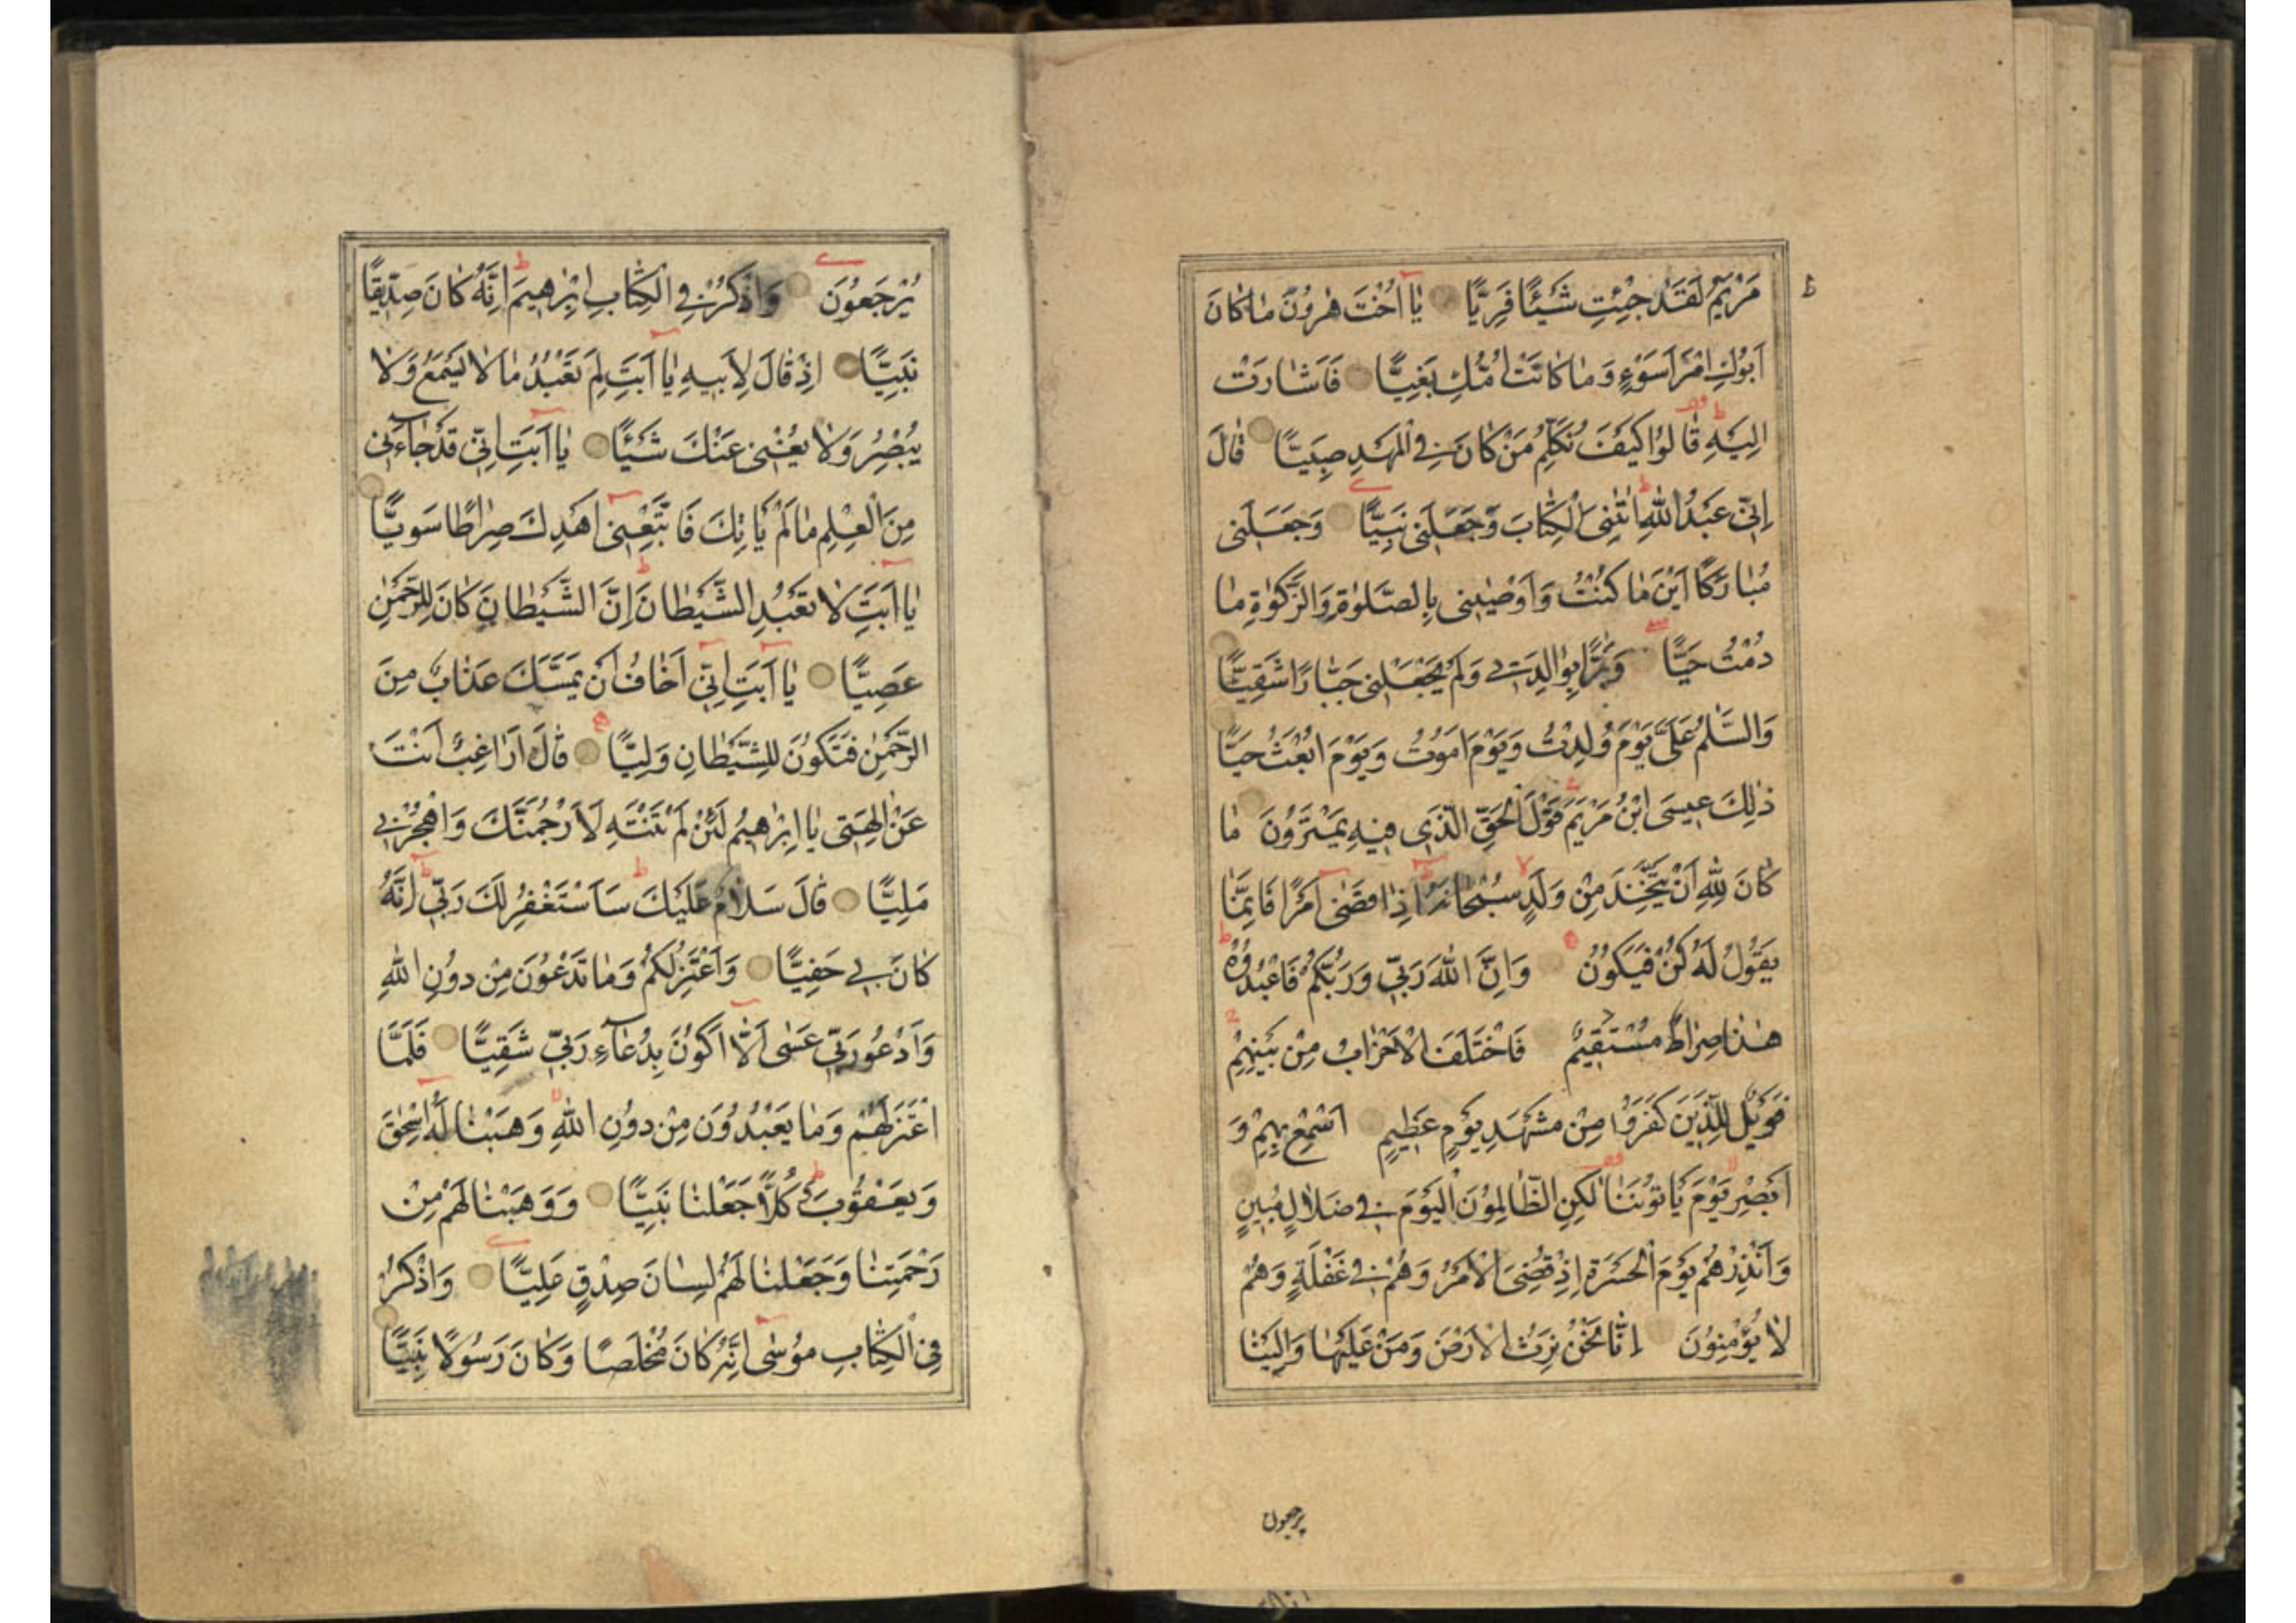 مَرْيَمُ لَقَدْ جِئْتِ شَيْئًا فَرِيًّا يَا أُخْتَ هٰرُونَ مَا كَانَ
أَبُوكِ امْرَأَ سَوْءٍ وَمَا كَانَتْ أُمُّكِ بَغِيًّا فَأَشَارَتْ
إِلَيْهِ قَالُوا كَيْفَ نُكَلِّمُ مَنْ كَانَ فِي الْمَهْدِ صَبِيًّا قَالَ
إِنِّي عَبْدُ اللّٰهِ اٰتٰنِيَ الْكِتَابَ وَجَعَلَنِي نَبِيًّا وَجَعَلَنِي
مُبَارَكًا أَيْنَ مَا كُنْتُ وَأَوْصٰينِي بِالصَّلٰوةِ وَالزَّكٰوةِ مَا
دُمْتُ حَيًّا وَبَرًّا بِوَالِدَتِي وَلَمْ يَجْعَلْنِي جَبَّارًا شَقِيًّا
وَالسَّلٰمُ عَلَيَّ يَوْمَ وُلِدْتُ وَيَوْمَ أَمُوتُ وَيَوْمَ أُبْعَثُ حَيًّا
ذٰلِكَ عِيسَى ابْنُ مَرْيَمَ قَوْلَ الْحَقِّ الَّذِي فِيهِ يَمْتَرُونَ مَا
كَانَ لِلّٰهِ أَنْ يَتَّخِذَ مِنْ وَلَدٍ سُبْحَانَهُ إِذَا قَضٰى أَمْرًا فَإِنَّمَا
يَقُولُ لَهُ كُنْ فَيَكُونُ وَإِنَّ اللّٰهَ رَبِّي وَرَبُّكُمْ فَاعْبُدُوهُ
هٰذَا صِرَاطٌ مُسْتَقِيمٌ فَاخْتَلَفَ الْأَحْزَابُ مِنْ بَيْنِهِمْ
فَوَيْلٌ لِلَّذِينَ كَفَرُوا مِنْ مَشْهَدِ يَوْمٍ عَظِيمٍ أَسْمِعْ بِهِمْ وَ
أَبْصِرْ يَوْمَ يَأْتُونَنَا لٰكِنِ الظَّالِمُونَ الْيَوْمَ فِي ضَلَالٍ مُبِينٍ
وَأَنْذِرْهُمْ يَوْمَ الْحَسْرَةِ إِذْ قُضِيَ الْأَمْرُ وَهُمْ فِي غَفْلَةٍ وَهُمْ
لَا يُؤْمِنُونَ إِنَّا نَحْنُ نَرِثُ الْأَرْضَ وَمَنْ عَلَيْهَا وَإِلَيْنَا
يرجعون
يُرْجَعُونَ وَاذْكُرْ فِي الْكِتَابِ إِبْرٰهِيمَ إِنَّهُ كَانَ صِدِّيقًا
نَبِيًّا إِذْ قَالَ لِأَبِيهِ يَا أَبَتِ لِمَ تَعْبُدُ مَا لَا يَسْمَعُ وَلَا
يُبْصِرُ وَلَا يُغْنِي عَنْكَ شَيْئًا يَا أَبَتِ إِنِّي قَدْ جَاءَنِي
مِنَ الْعِلْمِ مَا لَمْ يَأْتِكَ فَاتَّبِعْنِي أَهْدِكَ صِرَاطًا سَوِيًّا
يَا أَبَتِ لَا تَعْبُدِ الشَّيْطَانَ إِنَّ الشَّيْطَانَ كَانَ لِلرَّحْمٰنِ
عَصِيًّا يَا أَبَتِ إِنِّي أَخَافُ أَنْ يَمَسَّكَ عَذَابٌ مِنَ
الرَّحْمٰنِ فَتَكُونَ لِلشَّيْطَانِ وَلِيًّا قَالَ أَرَاغِبٌ أَنْتَ
عَنْ اٰلِهَتِي يَا إِبْرٰهِيمُ لَئِنْ لَمْ تَنْتَهِ لَأَرْجُمَنَّكَ وَاهْجُرْنِي
مَلِيًّا قَالَ سَلَامٌ عَلَيْكَ سَأَسْتَغْفِرُ لَكَ رَبِّي إِنَّهُ
كَانَ بِي حَفِيًّا وَأَعْتَزِلُكُمْ وَمَا تَدْعُونَ مِنْ دُونِ اللّٰهِ
وَأَدْعُو رَبِّي عَسٰى أَلَّا أَكُونَ بِدُعَاءِ رَبِّي شَقِيًّا فَلَمَّا
اعْتَزَلَهُمْ وَمَا يَعْبُدُونَ مِنْ دُونِ اللّٰهِ وَهَبْنَا لَهُ إِسْحٰقَ
وَيَعْقُوبَ وَكُلًّا جَعَلْنَا نَبِيًّا وَوَهَبْنَا لَهُمْ مِنْ
رَحْمَتِنَا وَجَعَلْنَا لَهُمْ لِسَانَ صِدْقٍ عَلِيًّا وَاذْكُرْ
فِي الْكِتَابِ مُوسٰى إِنَّهُ كَانَ مُخْلَصًا وَكَانَ رَسُولًا نَبِيًّا